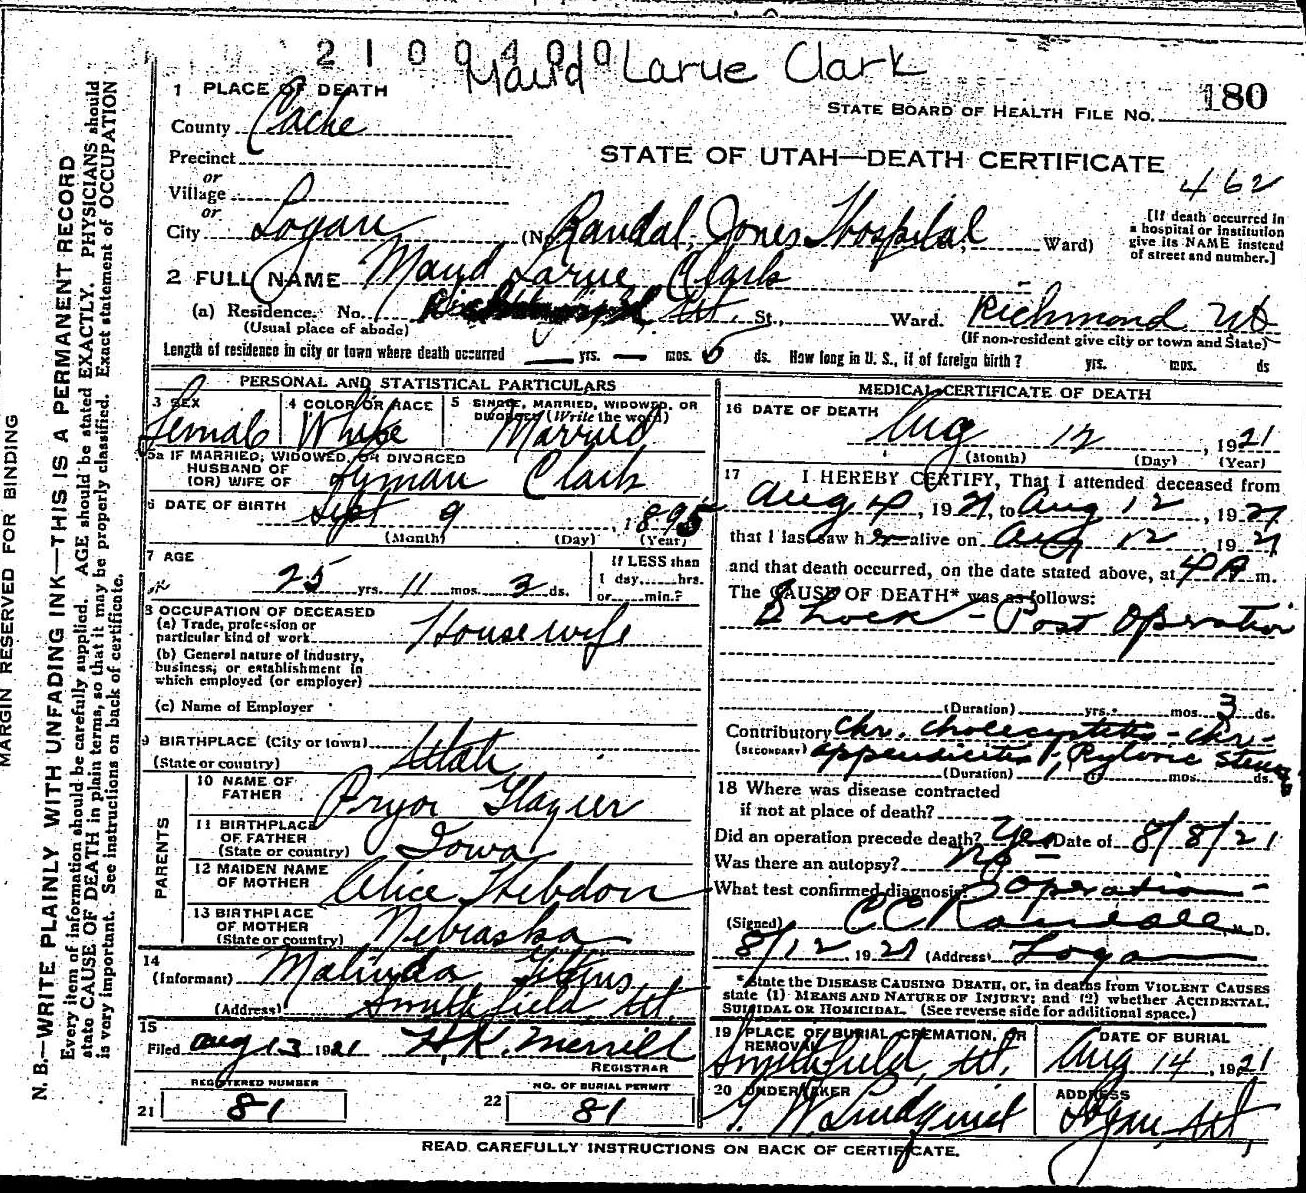 2100400
Maud Larue Clark
1 PLACE OF DEATH
STATE BOARD OF HEALTH FILE No. 180
County Cache
Precinct
or
STATE OF UTAH—DEATH CERTIFICATE
462
Village
or
City Logan (No. Randal, Jones Hospital, Ward)
[If death occurred in
a hospital or institution
give its NAME instead
of street and number.]
2 FULL NAME Maud Larue Clark
(a) Residence. No. Ut. St., Ward. Richmond Ut
(Usual place of abode)
(If non-resident give city or town and State)
Length of residence in city or town where death occurred — yrs. — mos. ds. How long in U. S., if of foreign birth? yrs. mos. ds
PERSONAL AND STATISTICAL PARTICULARS
3 SEX
Female
4 COLOR OR RACE
White
5 SINGLE, MARRIED, WIDOWED, OR
DIVORCED (Write the word)
Married
5a IF MARRIED, WIDOWED, OR DIVORCED
HUSBAND OF
(OR) WIFE OF Lyman Clark
6 DATE OF BIRTH
Sept 9, 1895
(Month) (Day) (Year)
7 AGE
25 yrs. 11 mos. 3 ds.
If LESS than
1 day, hrs.
or min.?
8 OCCUPATION OF DECEASED
(a) Trade, profession or
particular kind of work Housewife
(b) General nature of industry,
business, or establishment in
which employed (or employer)
(c) Name of Employer
9 BIRTHPLACE (City or town)
(State or country) Utah
PARENTS
10 NAME OF
FATHER Pryor Glazier
11 BIRTHPLACE
OF FATHER
(State or country) Iowa
12 MAIDEN NAME
OF MOTHER Alice Thebdon
13 BIRTHPLACE
OF MOTHER
(State or country) Nebraska
14
(Informant) Malinda
(Address) Smithfield, Ut.
15
Filed Aug 13 1921 H.K. Merrill
REGISTRAR
REGISTERED NUMBER
21 81
NO. OF BURIAL PERMIT
22 81
MEDICAL CERTIFICATE OF DEATH
16 DATE OF DEATH
Aug 12, 1921
(Month) (Day) (Year)
17 I HEREBY CERTIFY, That I attended deceased from
Aug 4, 1921, to Aug 12, 1921
that I last saw her alive on Aug 12 1921
and that death occurred, on the date stated above, at 4 A m.
The CAUSE OF DEATH* was as follows:
Shock - Post Operation
(Duration) yrs. mos. 3 ds.
Contributory Chr. cholecystitis - chr.
(SECONDARY) appendicitis, Pyloric
(Duration) mos. ds.
18 Where was disease contracted
if not at place of death?
Did an operation precede death? Yes Date of 8/8/21
Was there an autopsy? No
What test confirmed diagnosis? Operation
(Signed) C C Randall, M. D.
8/12, 1921 (Address) Logan
*State the DISEASE CAUSING DEATH, or, in deaths from VIOLENT CAUSES
state (1) MEANS AND NATURE OF INJURY; and (2) whether ACCIDENTAL,
SUICIDAL OR HOMICIDAL. (See reverse side for additional space.)
19 PLACE OF BURIAL, CREMATION, OR
REMOVAL
Smithfield, Ut.
DATE OF BURIAL
Aug 14, 1921
20 UNDERTAKER
W. Lindquist
ADDRESS
Logan, Ut.
READ CAREFULLY INSTRUCTIONS ON BACK OF CERTIFICATE.
MARGIN RESERVED FOR BINDING
N. B.—WRITE PLAINLY WITH UNFADING INK—THIS IS A PERMANENT RECORD
Every item of information should be carefully supplied. AGE should be stated EXACTLY. PHYSICIANS should
state CAUSE OF DEATH in plain terms, so that it may be properly classified. Exact statement of OCCUPATION
is very important. See instructions on back of certificate.